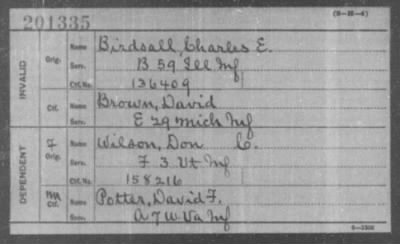 201335
(9-III-4)
INVALID
Orig. Name Birdsall, Charles E.
Serv. B 59 Ill Inf
Ctf. No. 136409
Ctf. Name Brown, David
Serv. E 29 Mich Inf
DEPENDENT
Orig. Name Wilson, Don C.
Serv. F 3 Vt Inf
Ctf. No. 158216
Ctf. Name Potter, David F.
Serv. A 7 W. Va Inf